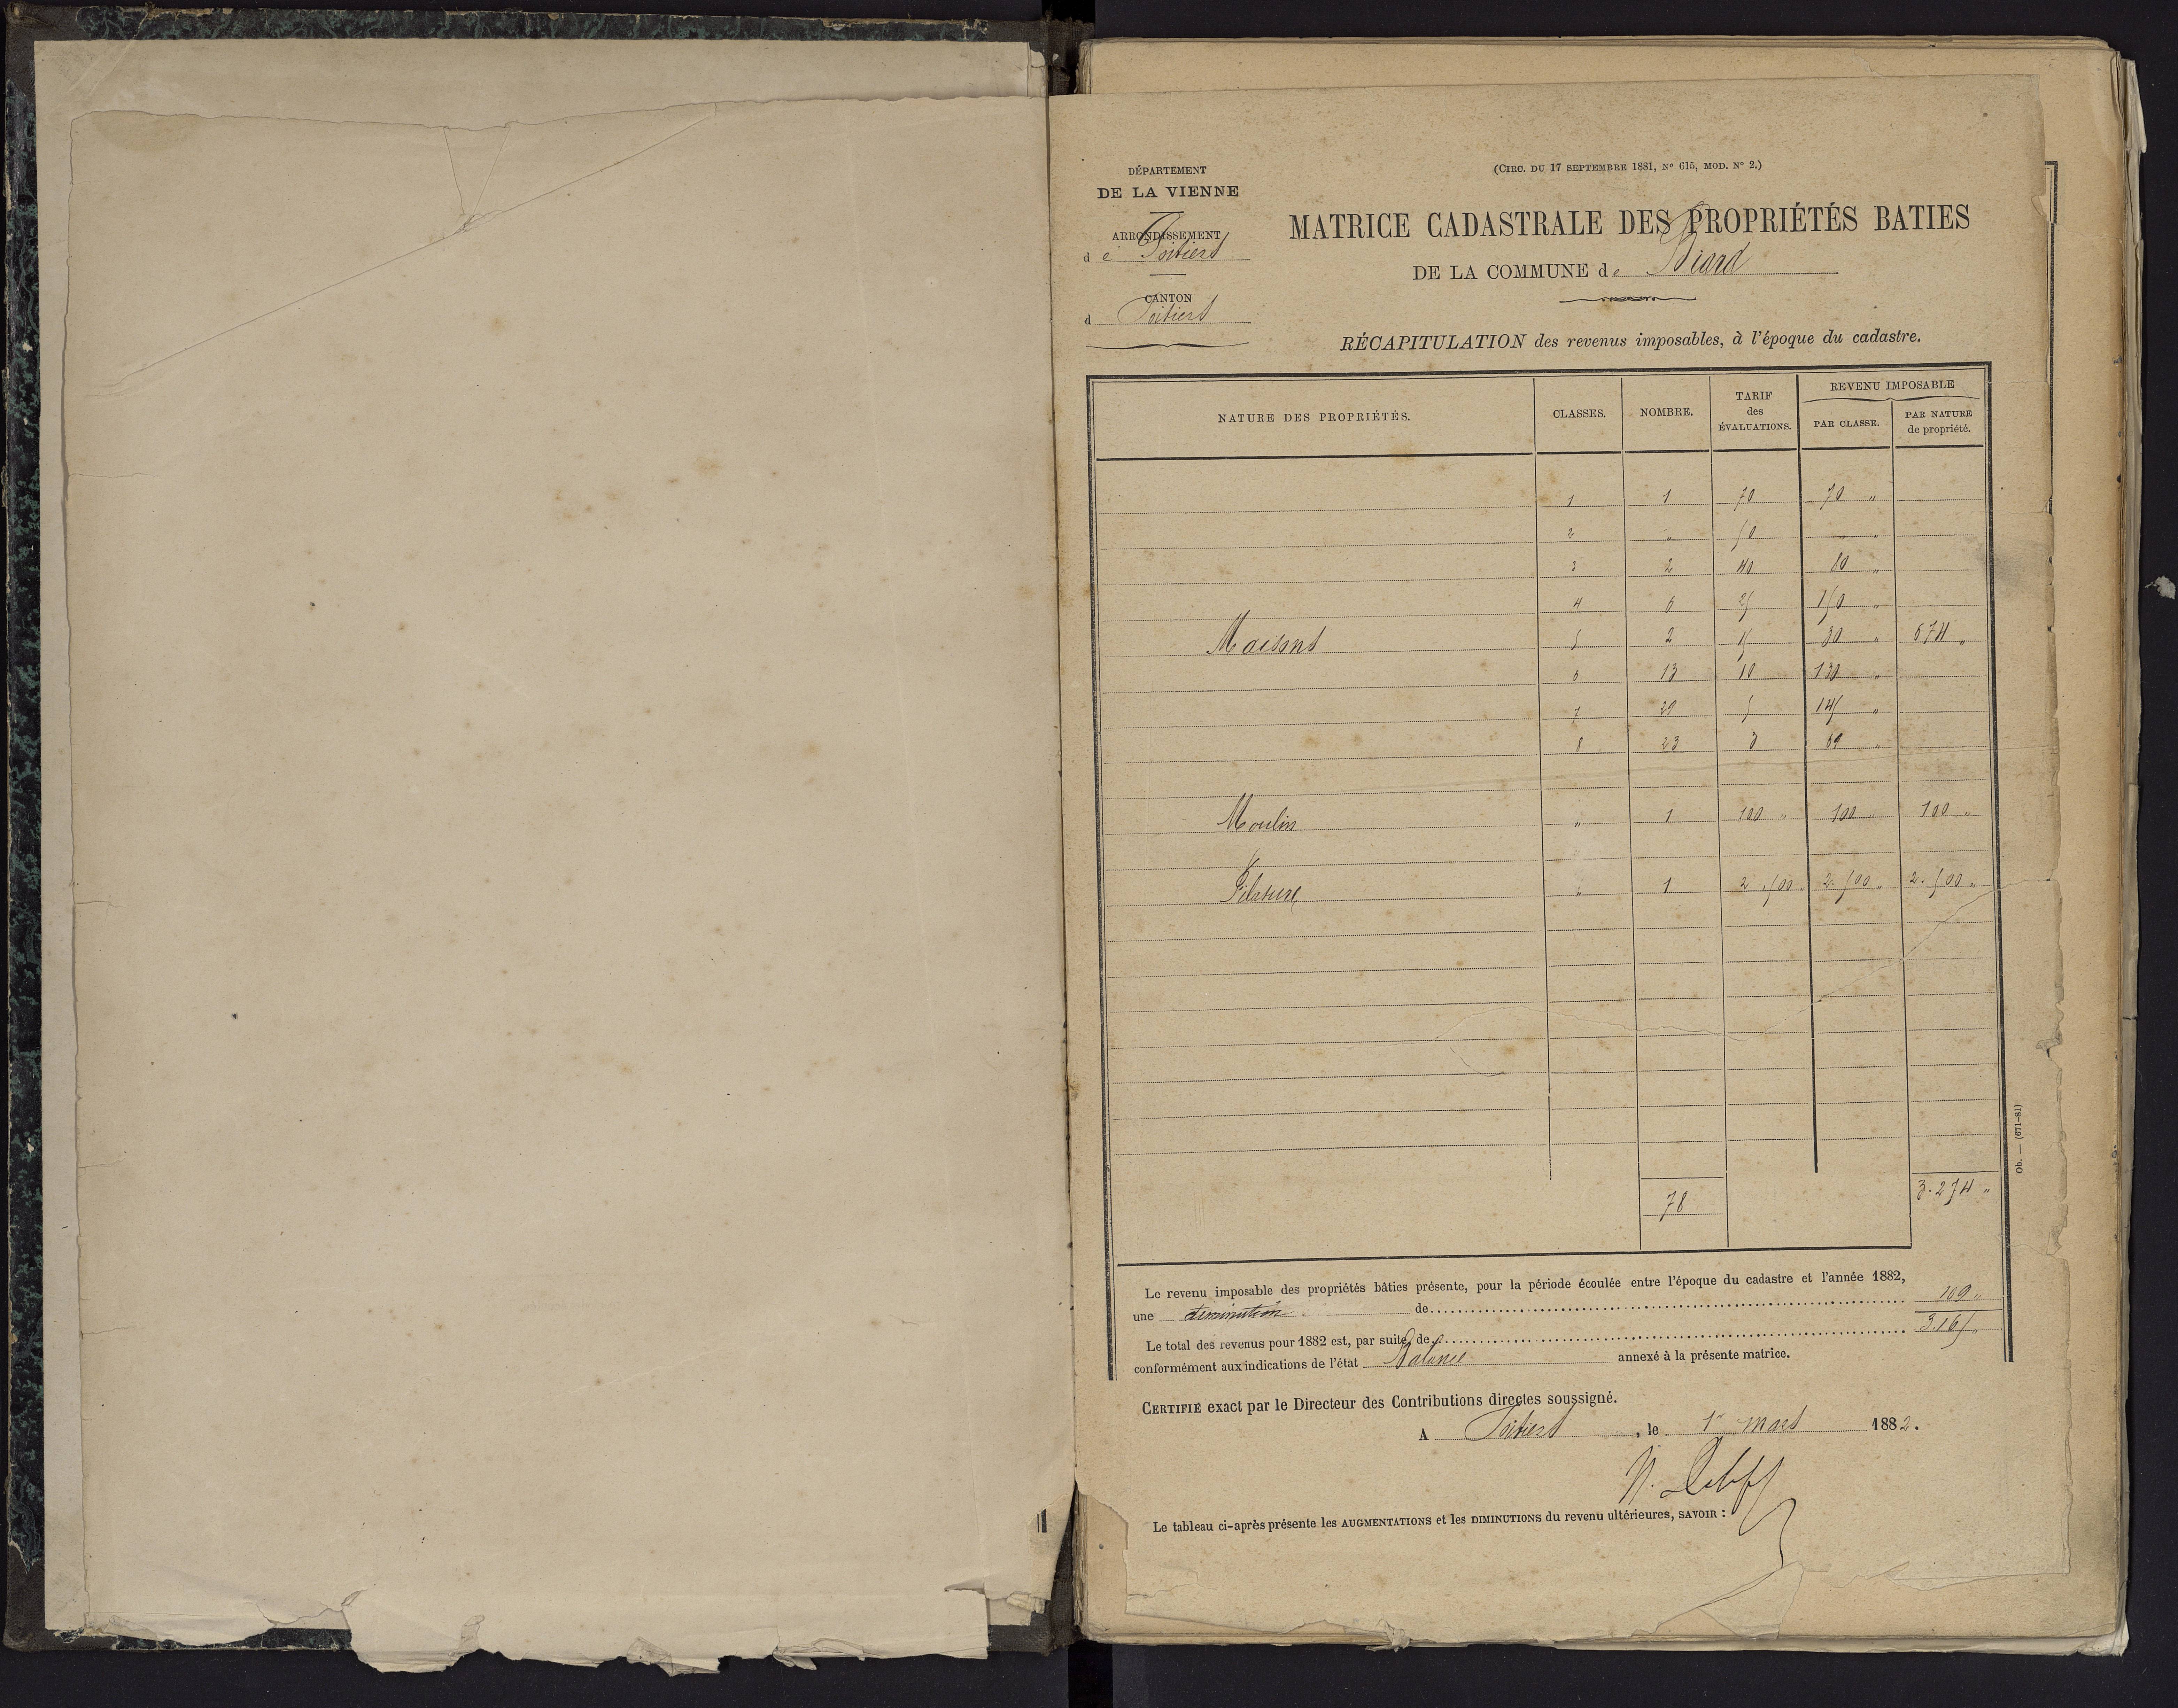 DÉPARTEMENT
DE LA VIENNE
ARRONDISSEMENT
de Poitiers
CANTON
d Poitiers
(CIRC. DU 17 SEPTEMBRE 1881, N° 615, MOD. N° 2.)
MATRICE CADASTRALE DES PROPRIÉTÉS BATIES
DE LA COMMUNE de Biard
RÉCAPITULATION des revenus imposables, à l'époque du cadastre.
NATURE DES PROPRIÉTÉS. CLASSES. NOMBRE. TARIF des ÉVALUATIONS. REVENU IMPOSABLE PAR CLASSE. PAR NATURE de propriété.
1 1 70 70 "
2 " 50 " "
3 2 40 80 "
4 6 25 150 "
Maisons 5 2 15 30 " 674 "
6 13 10 130 "
7 29 5 145 "
8 23 3 69 "
Moulin " 1 100 " 100 " 100 "
Filature " 1 2.500 " 2.500 " 2.500 "
78 3.274 "
Le revenu imposable des propriétés bâties présente, pour la période écoulée entre l'époque du cadastre et l'année 1882,
une diminution de 109 "
Le total des revenus pour 1882 est, par suite, de 3.165 "
conformément aux indications de l'état Balance annexé à la présente matrice.
CERTIFIÉ exact par le Directeur des Contributions directes soussigné.
A Poitiers, le 1er mars 1882.
Le tableau ci-après présente les AUGMENTATIONS et les DIMINUTIONS du revenu ultérieures, SAVOIR :
Ob. — (671-81)